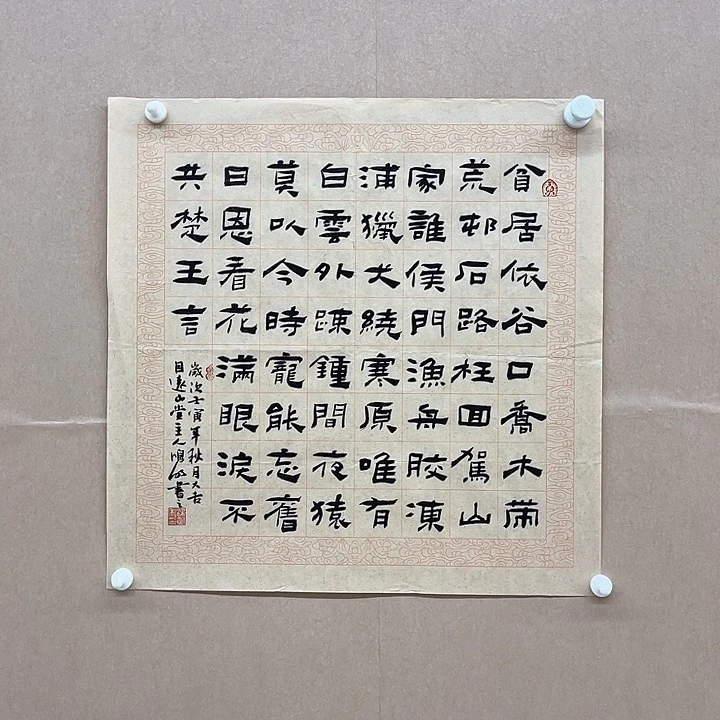 貧居依谷口喬木帯
荒邨石路枉回駕山
家誰候門漁舟膠凍
浦獵犬繞寒原唯有
白雲外疎鍾間夜猿
莫以今時寵能忘舊
日恩看花滿眼淚不
共楚王言
歲次壬寅年秋月人吉
目遠山堂主人順欽書之